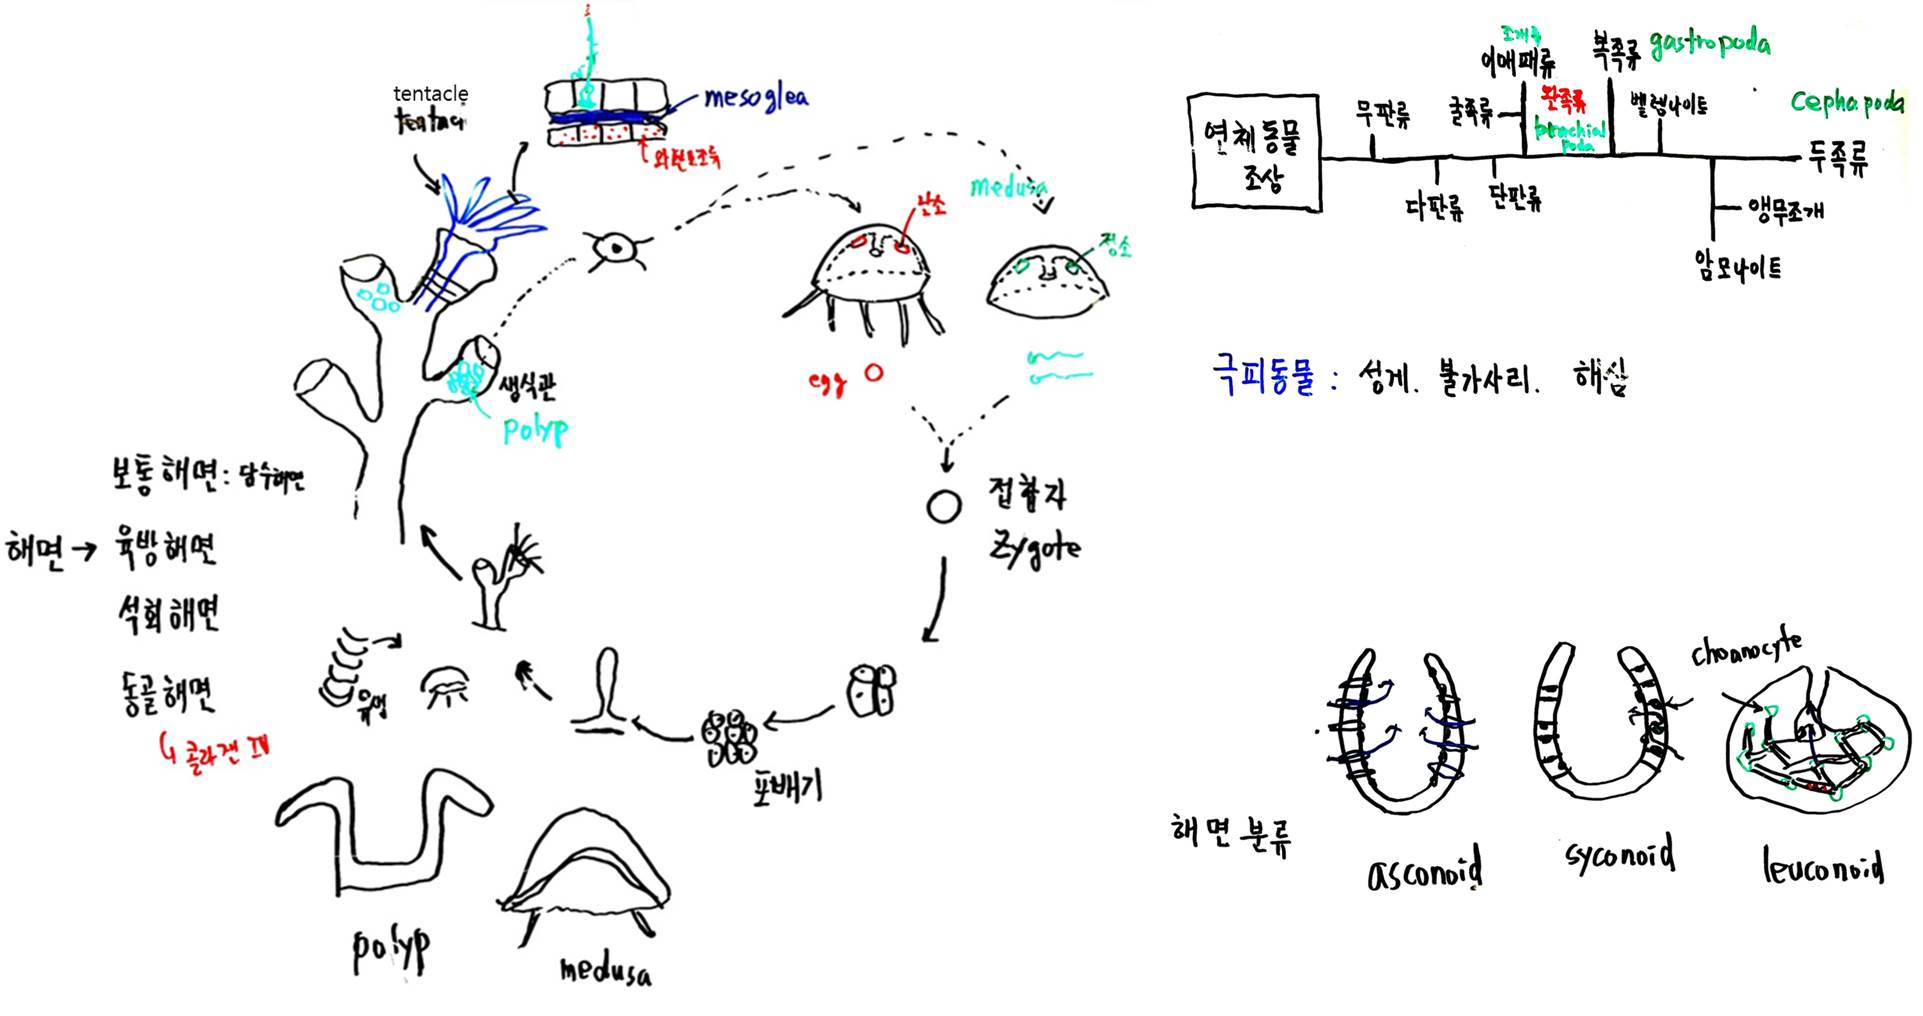 tentacle
mesoglea
와편모조류
medusa
난소
정소
egg
생식관
polyp
접합자
zygote
보통해면: 담수해면
해면 → 육방해면
석회해면
동골해면
↳ 콜라겐 IV
유영
포배기
polyp
medusa
연체동물
조상
무판류
다판류
굴족류
단판류
조개류
이매패류
완족류
brachial
poda
복족류 gastropoda
벨렘나이트
cephapoda
두족류
앵무조개
암모나이트
극피동물 : 성게. 불가사리. 해삼
choanocyte
해면 분류
asconoid
syconoid
leuconoid